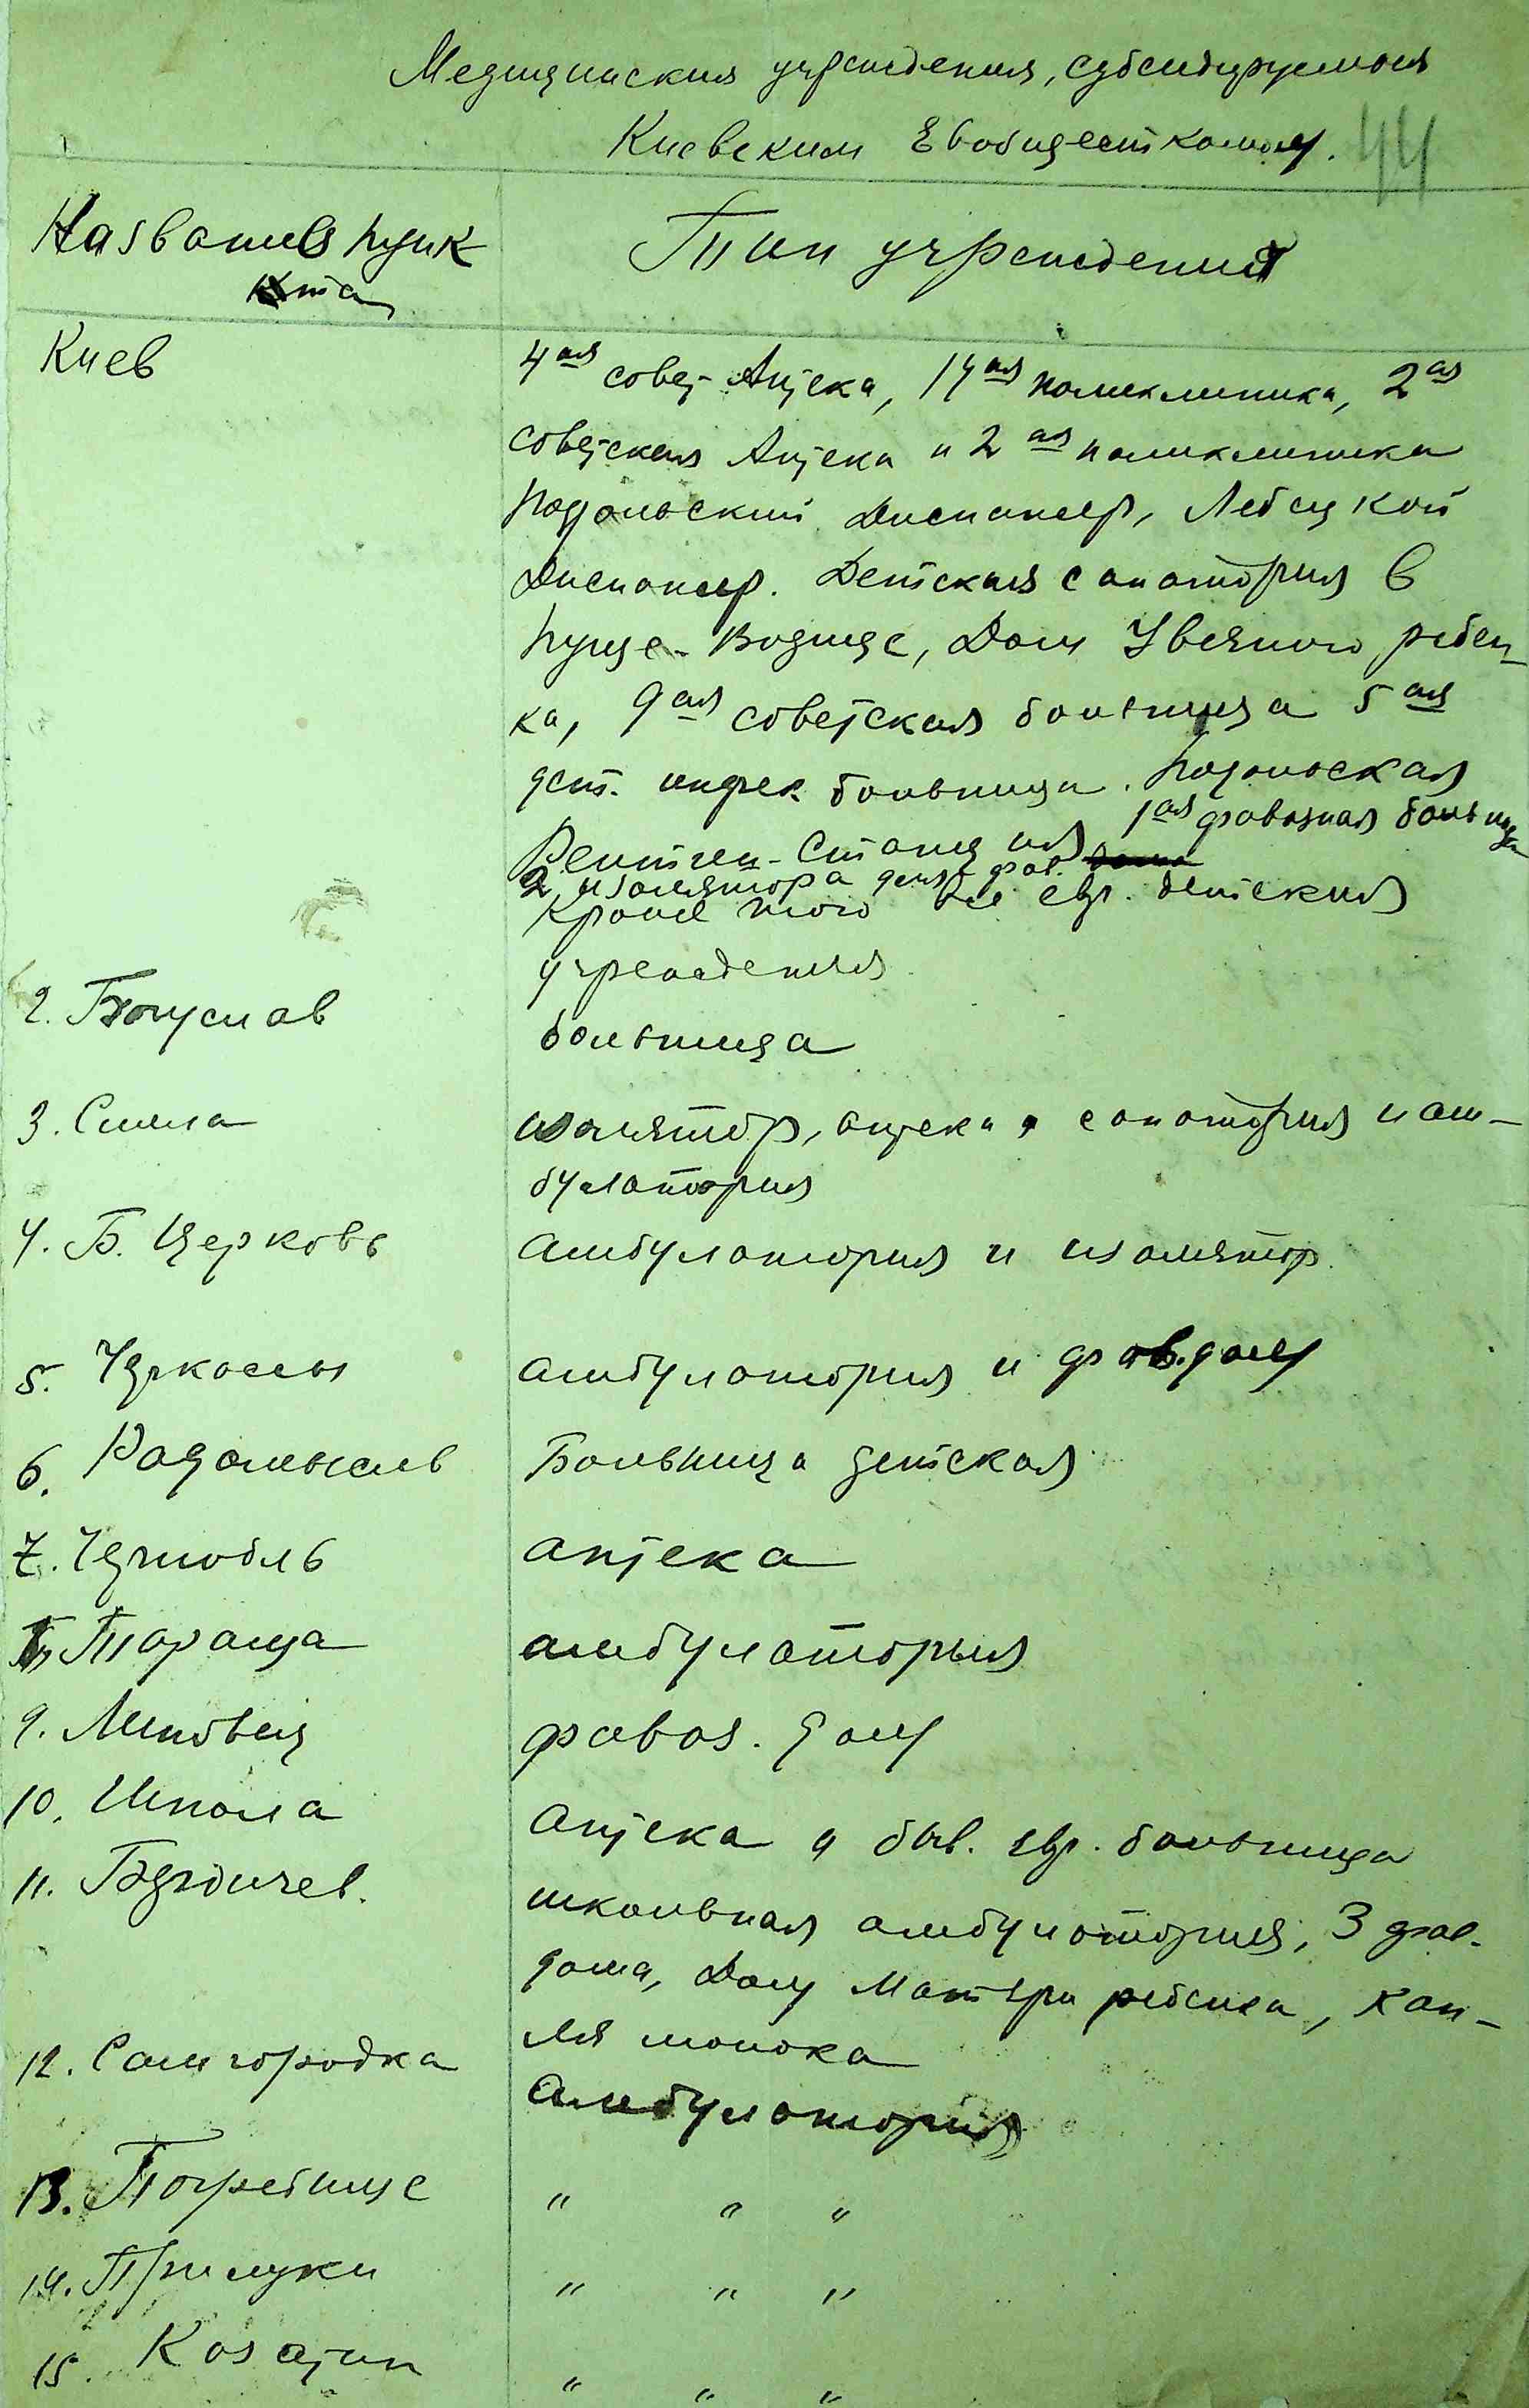 Медицинския учреждения, субсидируемыя
Киевским Евобщесткомом.
44
Названия пунк
та
Тип учреждения
Киев
4ая совет. Аптека, 14ая поликлиника, 2ая
советская Аптека и 2ая поликлиника
Подольский Диспансер,
Диспансер. Детская санатория в
Пуще-Водице, Дом Увечного ребен-
ка, 9ая советская больница 5ая
дет. инфек больница. Подольская
Рентген-Станция 1ая фавозная больница
2 изолятора для фав.
Кроме того все евр. детския
учреждения
2. Богуслав
больница
3. Смела
изолятор, аптека, санатория и ам-
булатория
4. Б. Церковь
амбулатория и изолятор.
5. Черкассы
амбулатория и фав. дом
6. Радомысль
Больница детская
7. Чернобль
аптека
Тараща
амбулатория
9. Липовец
фавоз. дом
10. Шпола
Аптека и быв. евр. больница
11. Бердичев.
школьная амбулатория, 3 фав.
дома, Дом Матери ребенка, Кап-
ля молока
12. Самгородка
Амбулатория
13. Погребище
" " "
14. Прилуки
" " "
15. Козатин
" " "